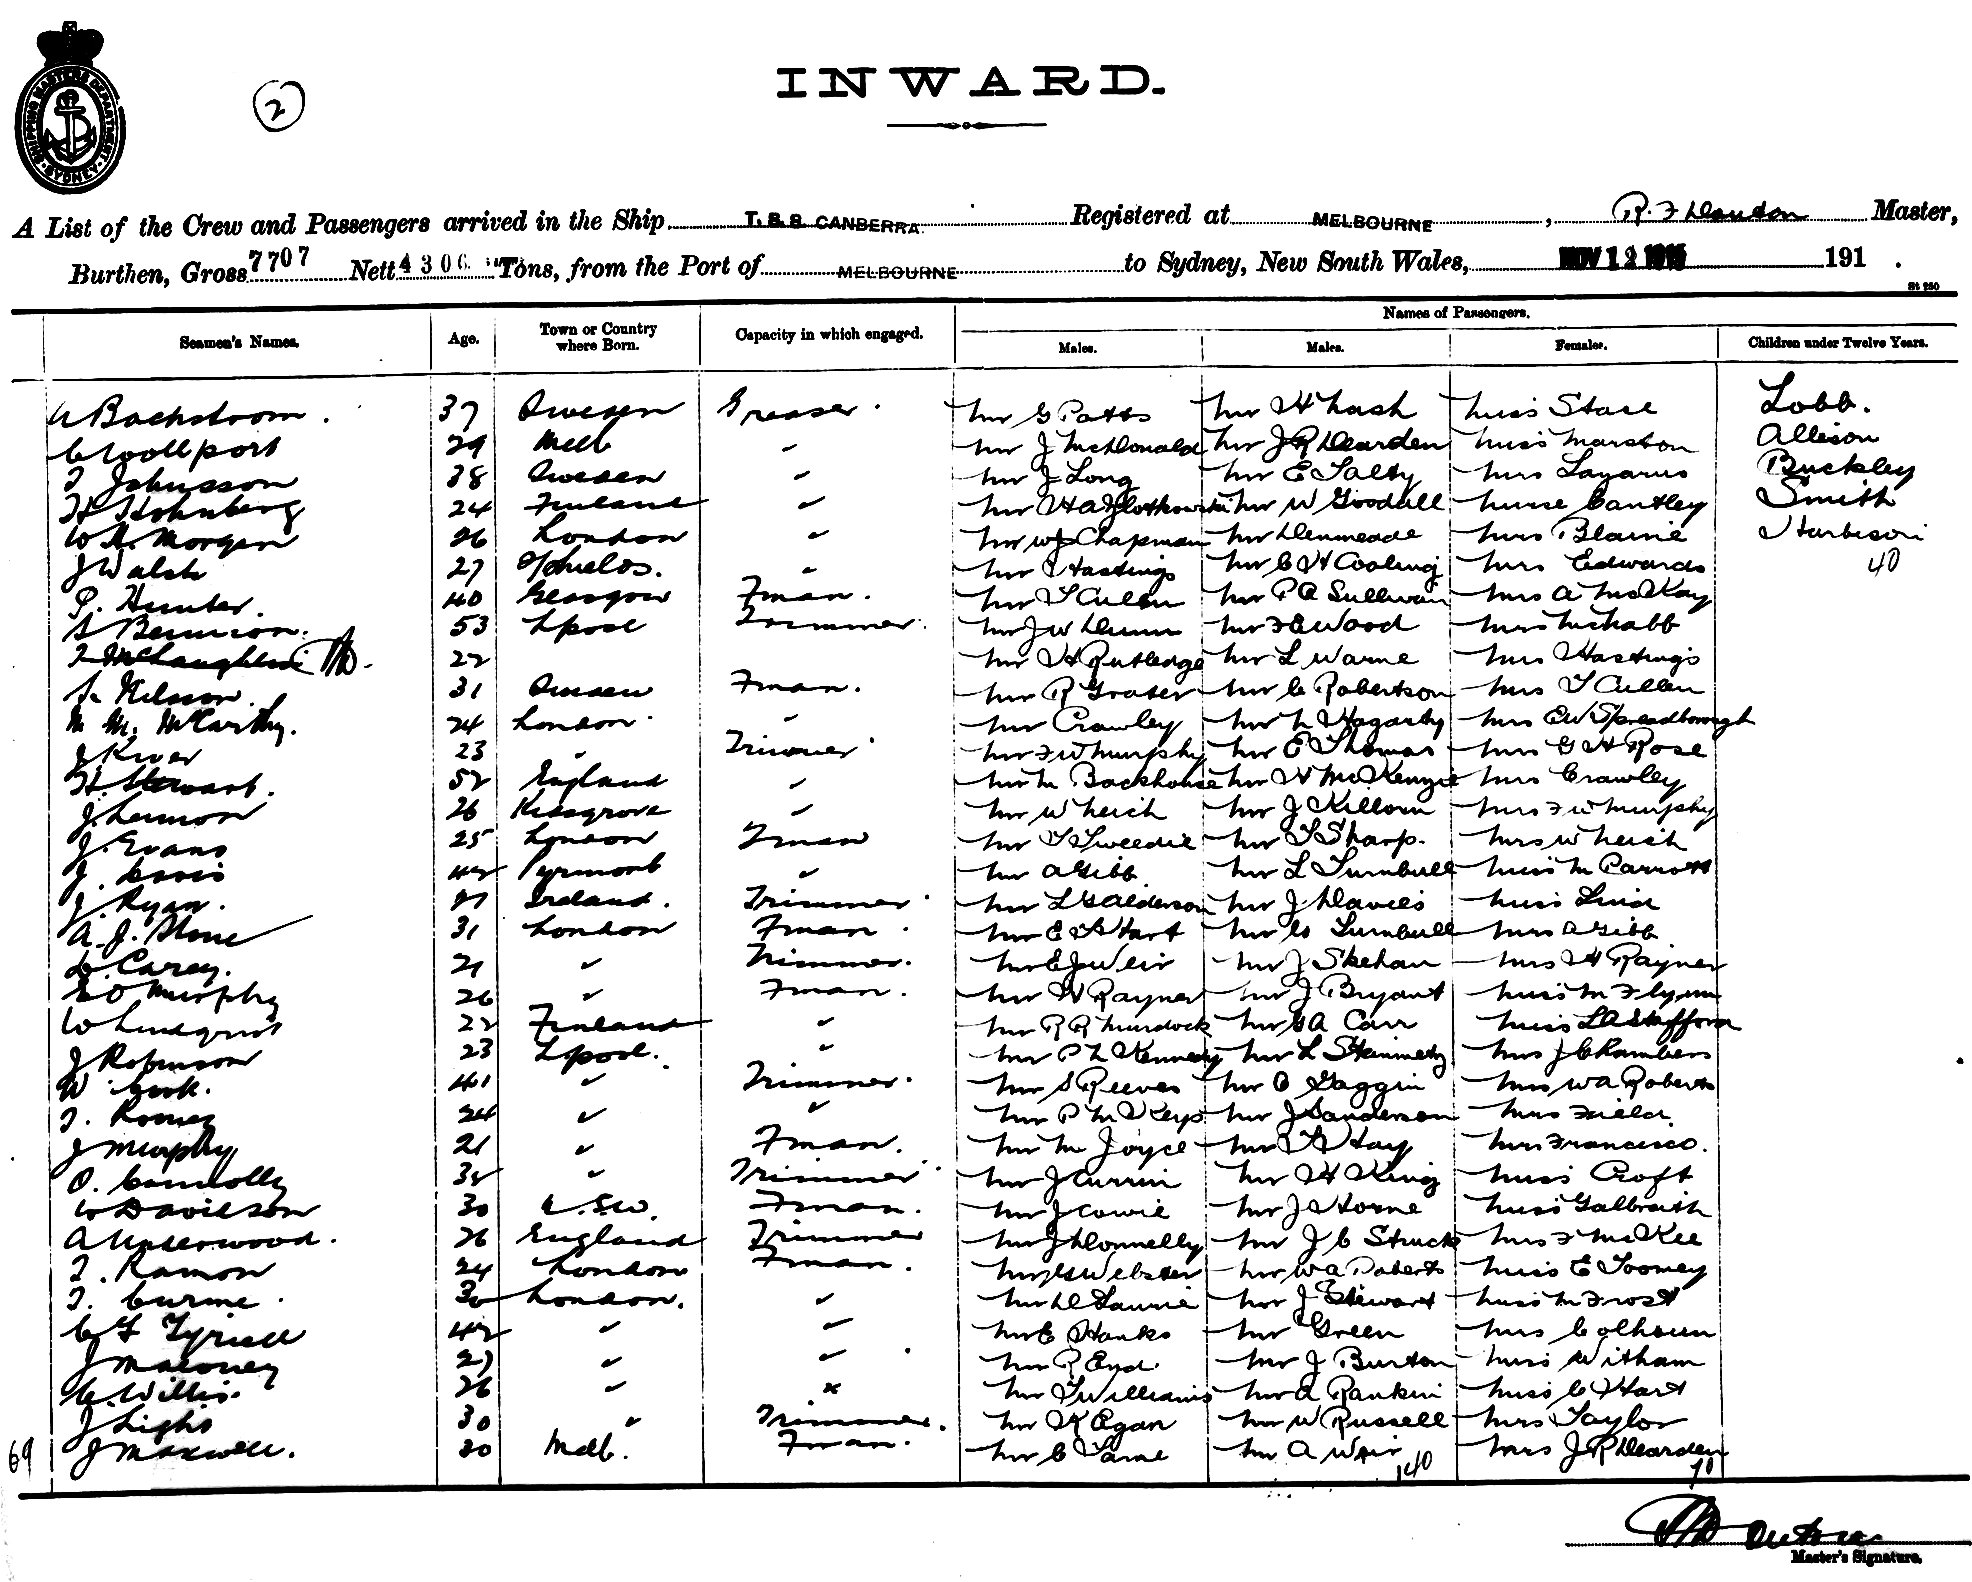 SHIPPING MASTERS DEPARTMENT SYDNEY
2
INWARD.
A List of the Crew and Passengers arrived in the Ship T.S.S CANBERRA. Registered at MELBOURNE, Master,
Burthen, Gross 7707 Nett 4306 Tons, from the Port of MELBOURNE to Sydney, New South Wales, NOV 12 191 .
St 250
Names of Passengers.
Seamen's Names. Age. Town or Country where Born. Capacity in which engaged. Males. Males. Females. Children under Twelve Years.
A Backstrom. 37 Sweden Greaser. Mr G Patts Mr H Nash Miss Stace Lobb.
29 Melb " Mr J McDonald Mr J R Dearden Miss Marston Allison
38 Sweden " Mr J Long Mr E Salty Mrs Lazarus Buckley
24 Finland " Mr W Goodall Nurse Cantley Smith
W A. Morgan 26 London " Mr W J Chapman Mr Denmeade Mrs Blaine Harbison
J Walsh 27 S/Shields. " Mr Hastings Mr C H Cooling Mrs Edwards 40
P. Hunter. 40 Glasgow Fman. Mr T Cullen Mr P A Sullivan Mrs A McKay
53 Lpool Trimmer. Mr J W Dunn Mr F C Wood Mrs McNabb
22 Mr H Rutledge Mr L Warne Mrs Hastings
Nilsson. 31 Sweden Fman. Mr R Fraser Mr C Robertson Mrs T Cullen
M M. McCarthy. 24 London. " Mr Crawley Mr L Hagarty Mrs E W Spreadborough
J Kiver 23 " Trimmer Mr F W Murphy Mr E Thomas Mrs G H Rose
H. Stewart. 52 England " Mr M Backhouse Mr H McKenzie Mrs Crawley
J. Lemon 26 " Mr W Leich Mr J Killorn Mrs F W Murphy
J. Evans 25 London Fman Mr T Tweedie Mr T Sharp. Mrs W Leich
J. Lewis 42 Pyrmont " Mr A Gibb Mr L Turnbull Miss M Parrott
J. Ryan. 27 Ireland. Trimmer Mr L G Alderson Mr J Davies Miss
A. J. Stone 31 London Fman. Mr E T Hart Mr G Turnbull Mrs A Gibb
Carey. 21 " Trimmer. Mr E J Weir Mr J Skehan Mrs H Rayner
Murphy 26 " Fman. Mr H Rayner Mr J Bryant Miss M Flynn
W Lindqvist 22 Finland " Mr R R Murdock Mr G A Carr Miss L A Stafford
J Robinson 23 Lpool. " Mr P L Kennedy Mr L Steinmetz Mrs J Chambers
W Cook. 41 " Trimmer. Mr S Reeves Mr C Gaggin Mrs W A Roberts
T. Rooney 24 " " Mr P M Keys Mr J Sanderson Mrs Field.
J Murphy 21 " Fman. Mr M Joyce Mr T G Hay Mrs Francisco.
O. Connolly 32 " Trimmer Mr J Currin Mr H King Miss Croft
W Davidson 30 N.S.W. Fman. Mr J Cowie Mr J Horne Miss Galbraith
A Underwood. 26 England Trimmer Mr J Donnelly Mr J C Struck Mrs F McKee
T. Ramon 24 London Fman. Mr G Webster Mr W A Roberts Miss E Toomey
T. Currie. 30 London. " Mr D Laurie Mr J Stewart Miss M Frost
C F Tyrrell 42 " " Mr E Hanks Mr Green Mrs Colhoun
J Maloney 27 " " Mr R End. Mr J Burton Miss Witham
C. Willis. 26 " " Mr T Williams Mr A Rankin Miss C Hart
J Light 30 " Trimmer. Mr K Egan Mr W Russell Mrs Taylor
69 J Maxwell. 30 Melb. Fman. Mr C Mr A Weir Mrs J R Dearden
140 70
Master's Signature.